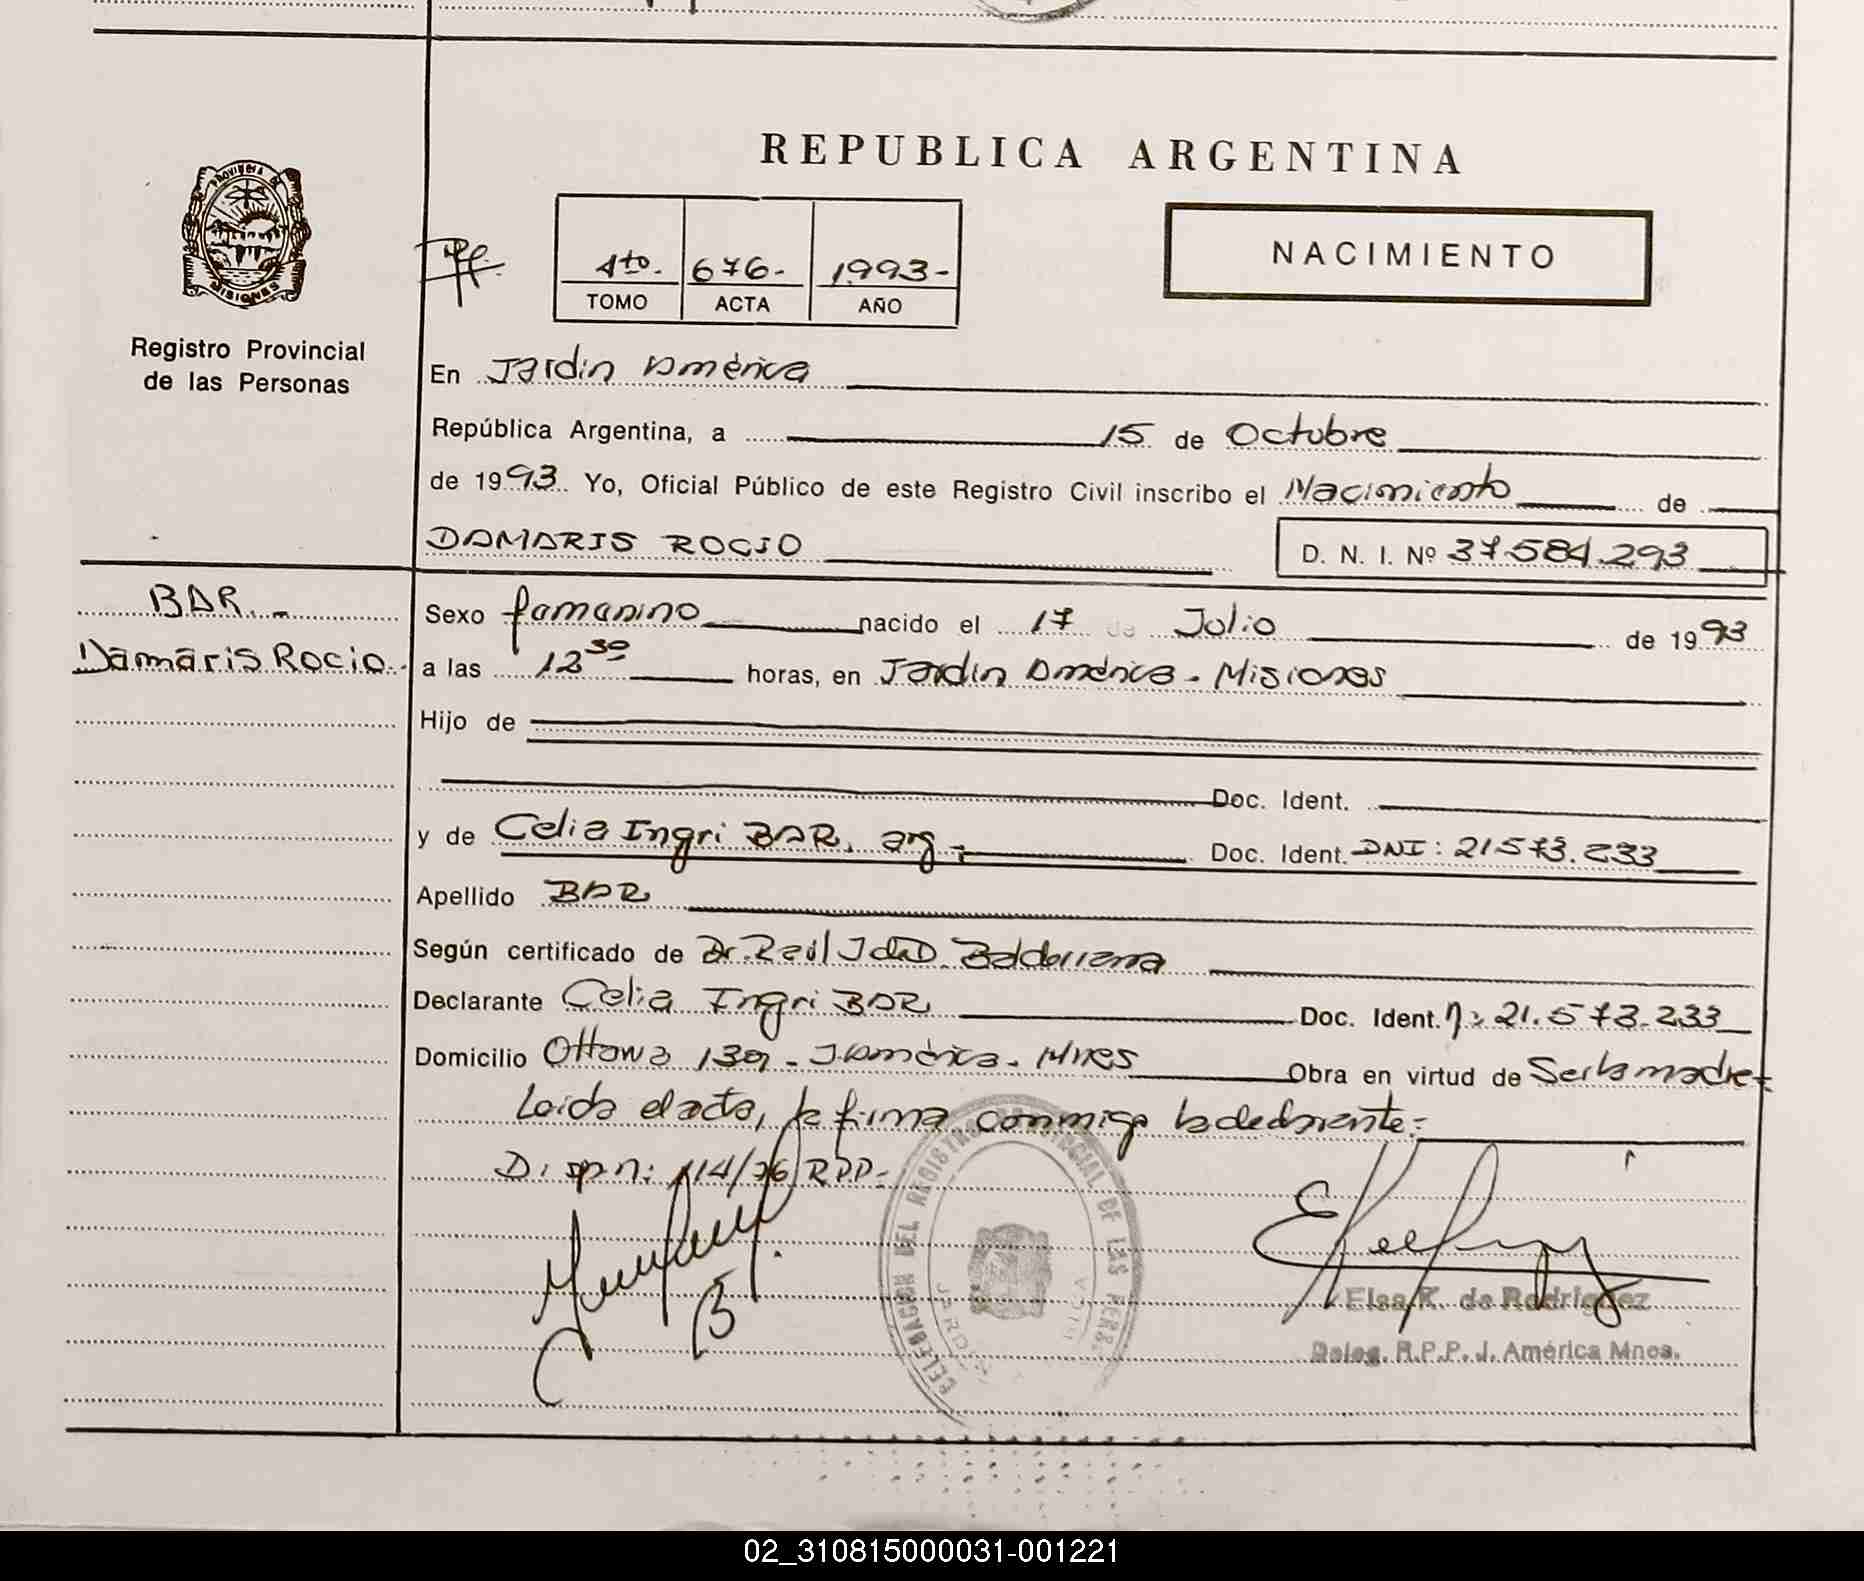 REPUBLICA ARGENTINA
PROVINCIA DE
MISIONES
Registro Provincial
de las Personas
4to. 676- 1.993-
TOMO ACTA AÑO
NACIMIENTO
En Jardin América
República Argentina, a 15 de Octubre
de 1993 Yo, Oficial Público de este Registro Civil inscribo el Nacimiento de
DAMARIS ROCIO D. N. I. Nº 37.584.293
BAR.-
Damaris Rocio.
Sexo femenino nacido el 17 de Julio de 1993
a las 12 30 horas, en Jardin América - Misiones
Hijo de
Doc. Ident.
y de Celia Ingri BAR, arg - Doc. Ident. DNI: 21573.233
Apellido BAR
Según certificado de Dr. Raúl Balderrama
Declarante Celia Ingri BAR Doc. Ident. N: 21.573.233
Domicilio Ottawa 139 - J. América - Mnes Obra en virtud de Ser la madre-
Leida el acta, la firma conmigo la declarante:-
Disp. n: 114/76 RPP-
DELEGACION DEL REGISTRO PROVINCIAL DE LAS PERS
Elsa K. de Rodriguez
Deleg. R.P.P. J. América Mnes.
02_310815000031-001221